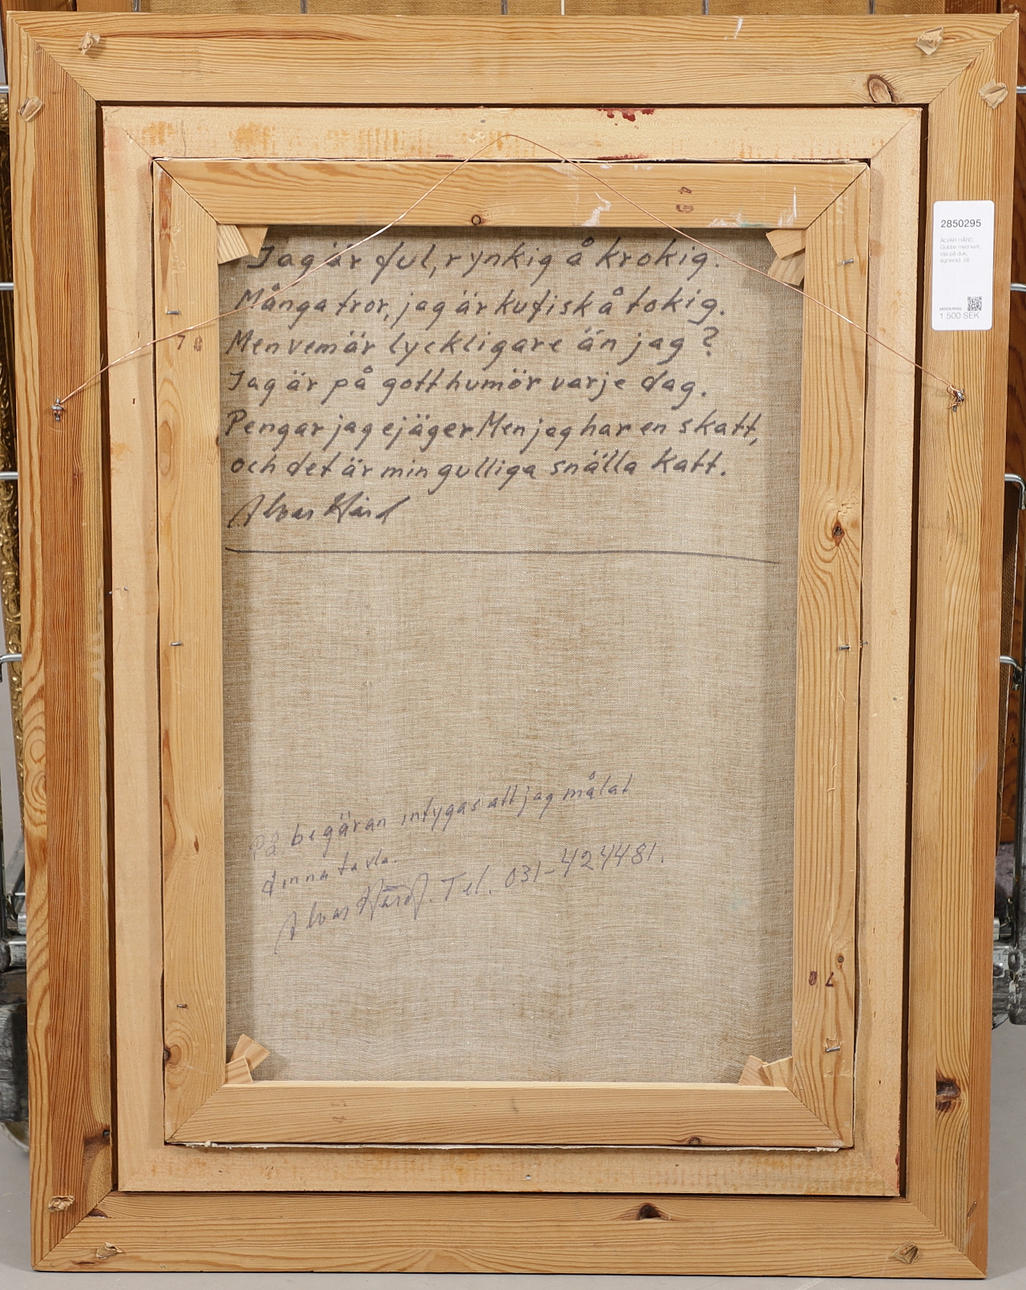 Jag är ful, rynkig å krokig.
Många tror, jag är kufisk å tokig.
Men vem är lyckligare än jag?
Jag är på gott humör varje dag.
Pengar jag ej äger Men jag har en skatt,
och det är min gulliga snälla katt.
Alvar Hård
På begäran intygas att jag målat
denna tavla.
Alvar Hård. Tel. 031-424481.
2850295
ALVAR HÅRD,
1 500 SEK